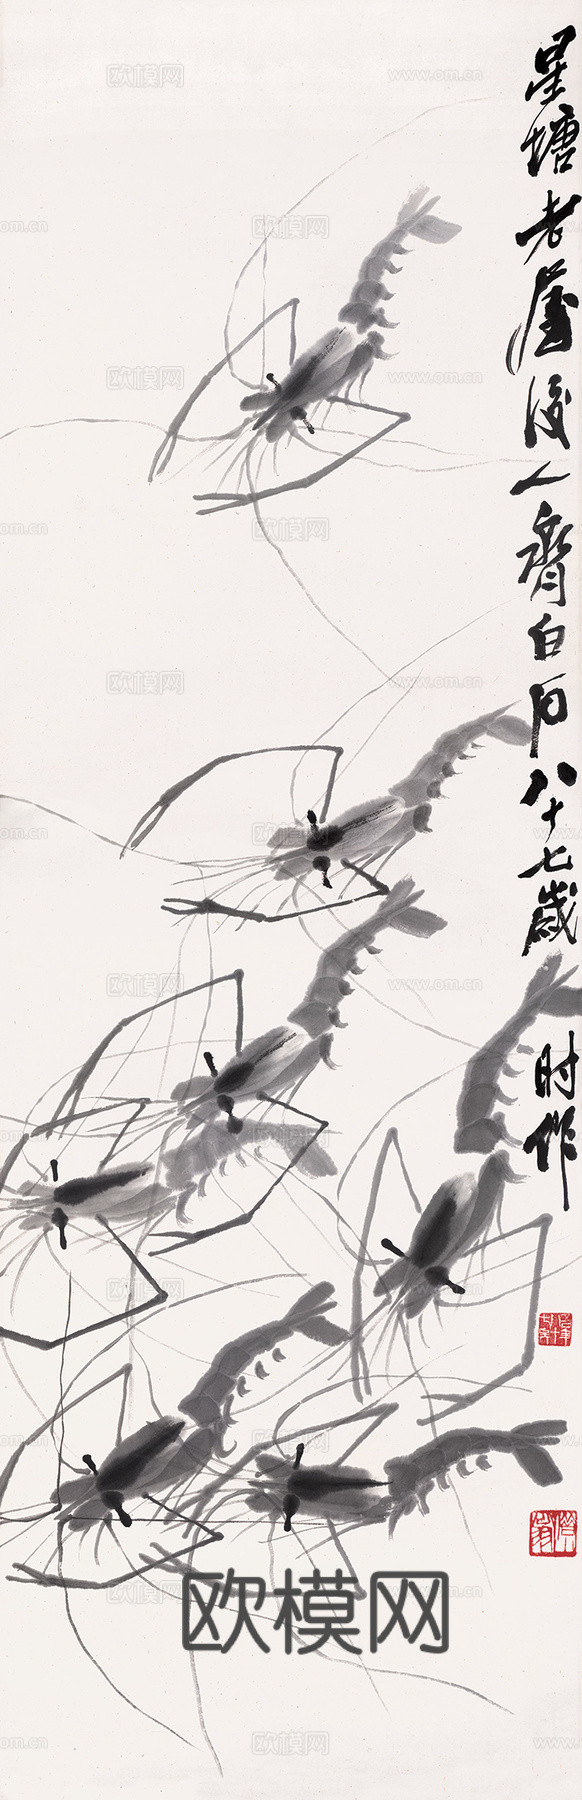 星塘老屋後人齊白石八十七歲
时作
欧模网
www.om.cn